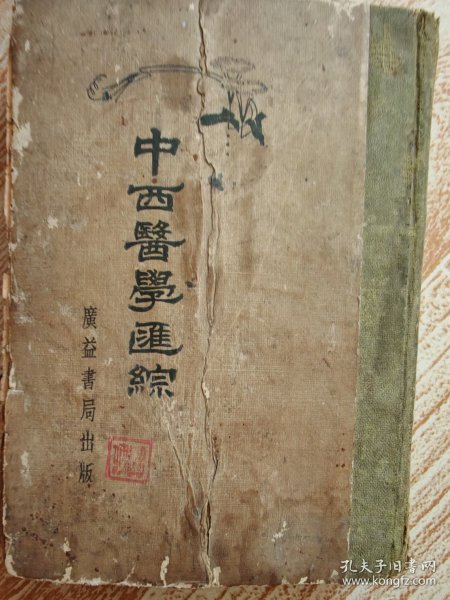 中西醫學匯綜
廣益書局出版
孔夫子旧书网
www.kongfz.com